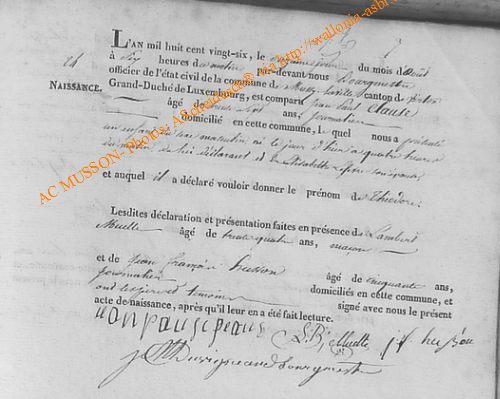 L'AN mil huit cent vingt-six, le du mois d'août
à six heures du matin par-devant nous Bourgmestre
officier de l'état civil de la commune de Mussy-la-ville canton de
Grand-Duché de Luxembourg, est comparu jean paul Clause
24
NAISSANCE.
âgé de trente sept ans, journalier
domicilié en cette commune, lequel nous a présenté
un enfant du sexe masculin né le jour d'hier à quatre heures
du matin de lui déclarant et de Elisabeth son épouse
et auquel il a déclaré vouloir donner le prénom de Théodore
Lesdites déclaration et présentation faites en présence de Lambert
Muelle âgé de trente quatre ans, maçon
et de jean françois husson âgé de cinquante ans,
journalier domiciliés en cette commune, et
ont les père et témoins signé avec nous le présent
acte de naissance, après qu'il leur en a été fait lecture.
L. B. Muelle j f husson
bourgmestre
AC MUSSON- Photos: AS d'Arlon @ via http://wallonia-asbl